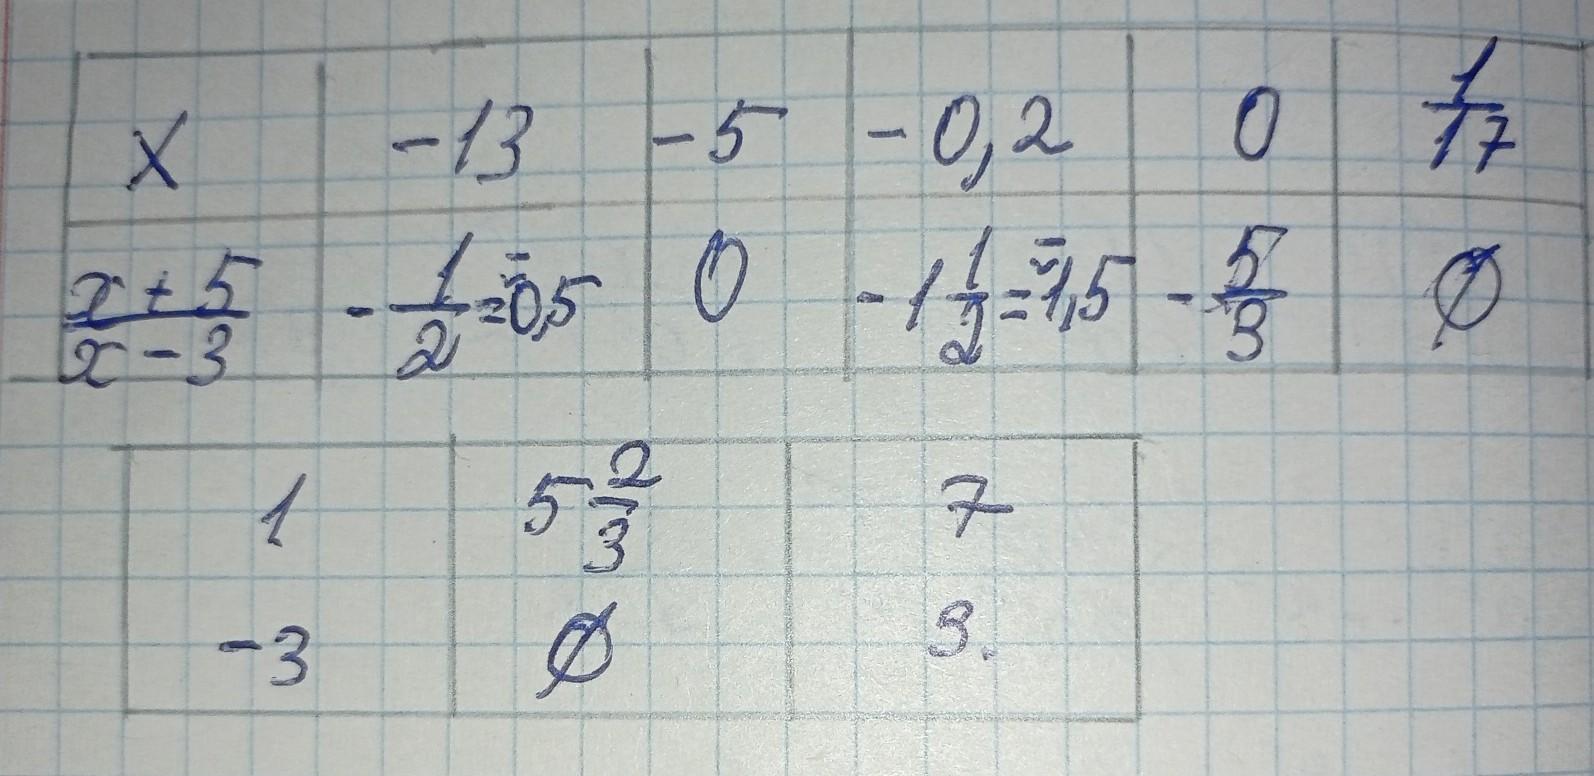 x -13 -5 -0,2 0 1/17
x+5/x-3 -1/2=-0,5 0 -1 1/2=-1,5 -5/3 ∅
1 5 2/3 7
-3 ∅ 3.